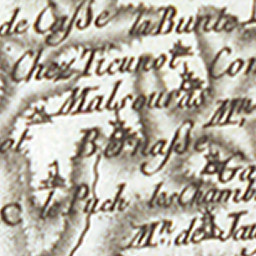 de Casse la Bunte
Chez Ticunot Con
Malsouras Mn
ot Bernasse
Ga
C le Puch les Chamb
Mn. de Jau